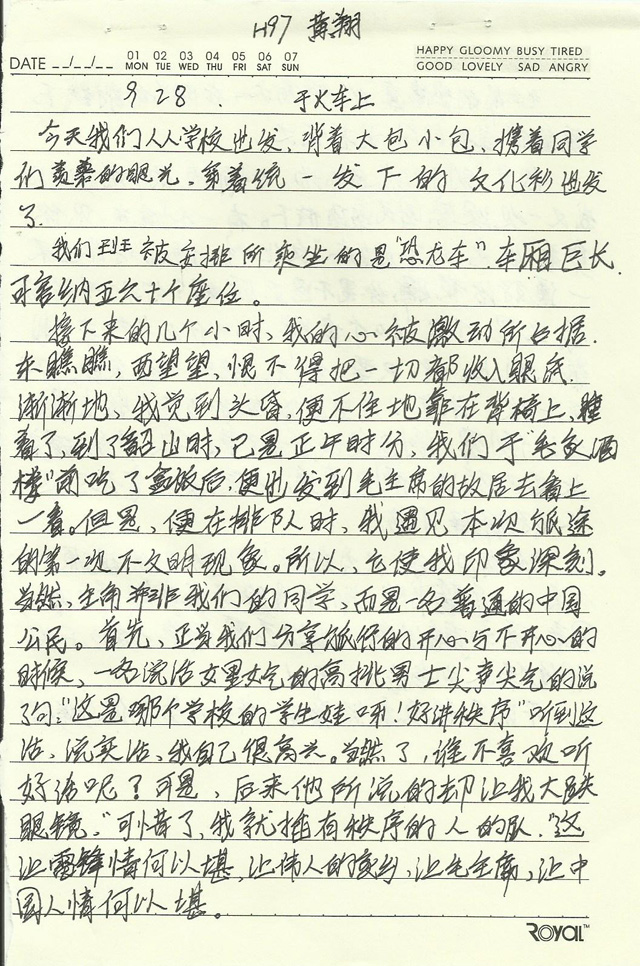 H97 黄翔
DATE __/__/__ 01 MON 02 TUE 03 WED 04 THU 05 FRI 06 SAT 07 SUN HAPPY GLOOMY BUSY TIRED
GOOD LOVELY SAD ANGRY
9 28. 于火车上
今天我们从学校出发,背着大包小包,携着同学
们羡慕的眼光,穿着统一发下的文化衫出发
了.
我们班被安排所乘坐的是"恐龙车".车厢巨长.
可容纳五六十个座位。
接下来的几个小时,我的心被激动所占据.
东瞧瞧,西望望,恨不得把一切都收入眼底.
渐渐地,我觉到头昏,便不住地靠在背椅上,睡
着了,到了韶山时,已是正午时分,我们于"毛家酒
楼"前吃了盒饭后,便出发到毛主席的故居去看上
一看。但是,便在排队时,我遇见本次旅途
的第一次不文明现象。所以,它使我印象深刻。
当然,主角并非我们的同学,而是一名普通的中国
公民。首先,正当我们分享旅行的开心与不开心的
时候,一名流活女里女气的高挑男士尖声尖气的说
了句,"这是哪个学校的学生娃呀!好讲秩序"听到这
话,说实话,我自己很高兴。当然了,谁不喜欢听
好话呢?可是,后来他所说的却让我大跌
眼镜,"可惜了,我就插有秩序的人的队."这
让雷锋情何以堪,让伟人的家乡,让毛主席,让中
国人情何以堪。
ROYAL™